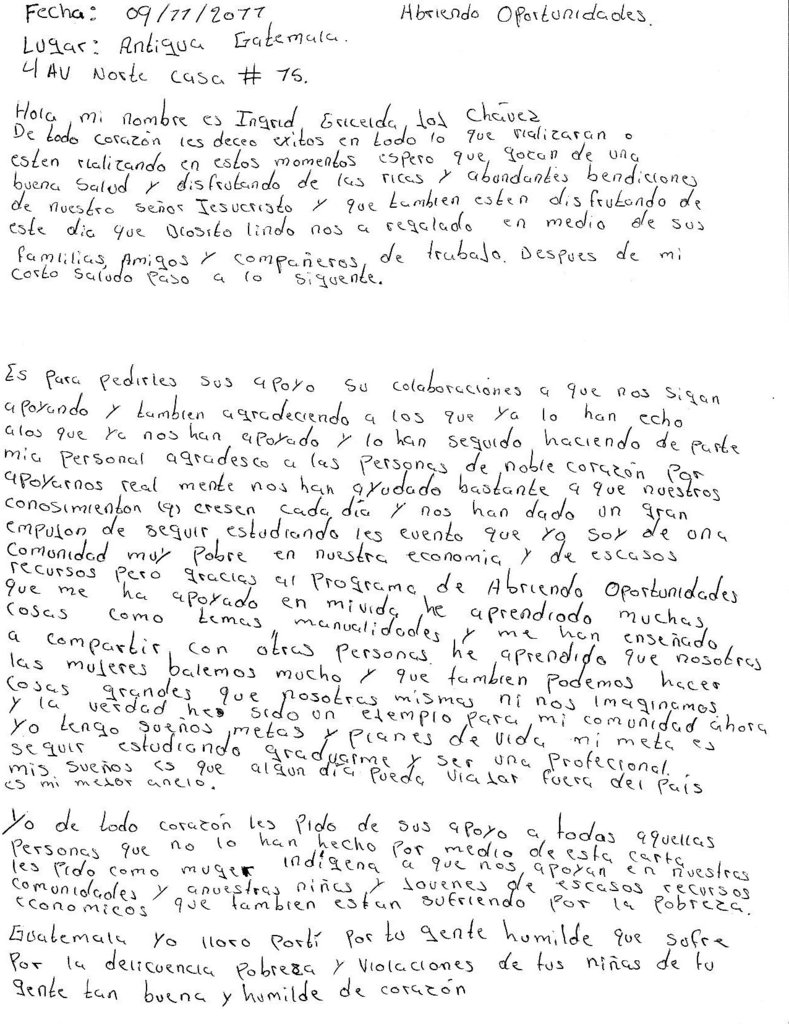 Fecha: 09/11/2011 Abriendo Oportunidades.
Lugar: Antigua Gatemala.
4 AV Norte casa # 15.
Hola mi nombre es Ingrid Ericelda Chávez
De todo corazón les deceo exitos en todo lo que rializaran o
esten rializando en estos momentos espero que gozan de una
buena salud y disfrutando de las ricas y abundantes bendiciones
de nuestro señor Jesucristo y que tambien esten disfrutando de
este dia que Diosito lindo nos a regalado en medio de sus
famlilias, Amigos y compañeros de trabajo. Despues de mi
corto saludo paso a lo siguente.
Es para pedirles sus apoyo su colaboraciones a que nos sigan
apoyando y tambien agradeciendo a los que ya lo han echo
alos que ya nos han apoyado y lo han seguido haciendo de parte
mia personal agradesco a las personas de noble corazón por
apoyarnos real mente nos han ayudado bastante a que nuestros
conosimienton (q) cresen cada día y nos han dado un gran
empujon de seguir estudiando les cuento que yo soy de una
comunidad muy pobre en nuestra economia y de escasos
recursos pero gracias al programa de Abriendo Oportunidades
que me ha apoyado en mivida he aprendiodo muchas
cosas como temas, manualidades y me han enseñado
a compartir con otras personas. he aprendido que nosotras
las mujeres balemos mucho y que tambien podemos hacer
cosas grandes que nosotras mismas ni nos imaginamos
y la verdad he sido un ejemplo para mi comunidad ahora
Yo tengo sueños metas y planes de vida mi meta es
seguir estudiando graduarme y ser una profecional.
mis sueños es que algun día pueda viajar fuera del país
es mi mejor anelo.
Yo de todo corazón les pido de sus apoyo a todas aquellas
personas que no lo han hecho por medio de esta carta
les pido como muger indígena a que nos apoyan en nuestras
comunidades y anuestras niñas y jovenes de escasos recursos
economicos que tambien estan sufriendo por la pobreza.
Guatemala yo lloro portí por tu gente humilde que sufre
por la delicuencia pobreza y violaciones de tus niñas de tu
gente tan buena y humilde de corazón